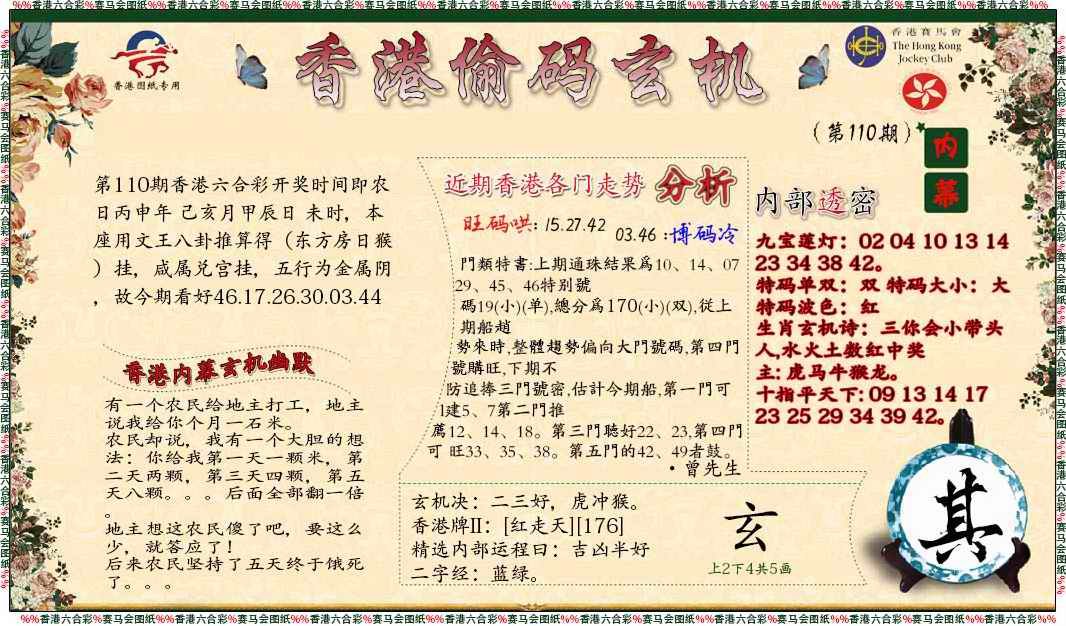 %%香港六合彩%赛马会图纸%%香港六合彩%赛马会图纸%%香港六合彩%赛马会图纸%%香港六合彩%赛马会图纸%%香港六合彩%赛马会图纸%%香港六合彩%赛马会图纸%%香港六合彩%%
香港图纸专用
香港偷码玄机
香港賽馬會
The Hong Kong
Jockey Club
(第110期)
内
幕
第110期香港六合彩开奖时间即农
日丙申年 己亥月甲辰日 未时，本
座用文王八卦推算得（东方房日猴
）挂，咸属兑宫挂，五行为金属阴
，故今期看好46.17.26.30.03.44
香港内幕玄机幽默
有一个农民给地主打工，地主
说我给你个月一石米。
农民却说，我有一个大胆的想
法：你给我第一天一颗米，第
二天两颗，第三天四颗，第五
天八颗。。。后面全部翻一倍
。
地主想这农民傻了吧，要这么
少，就答应了！
后来农民坚持了五天终于饿死
了。。。
近期香港各门走势 分析
旺码哄: 15.27.42
03.46 :博码冷
門類特書:上期通珠結果爲10、14、07
29、45、46特别號
碼19(小)(单),總分爲170(小)(双),從上
期船趙
勢來時,整體趨勢偏向大門號碼,第四門
號購旺,下期不
防追捧三門號密,估計今期船,第一門可
1建5、7第二門推
薦12、14、18。第三門聽好22、23,第四門
可 旺33、35、38。第五門的42、49者鼓。
·曾先生
玄机决：二三好，虎冲猴。
香港牌II：[红走天][176]
精选内部运程曰：吉凶半好
二字经：蓝绿。
玄
上2下4共5画
内部透密
九宝莲灯：02 04 10 13 14
23 34 38 42。
特码单双：双 特码大小：大
特码波色：红
生肖玄机诗：三你会小带头
人,水火土数红中奖
主: 虎马牛猴龙。
十指平天下: 09 13 14 17
23 25 29 34 39 42。
其
%%香港六合彩%赛马会图纸%%香港六合彩%赛马会图纸%%香港六合彩%赛马会图纸%%香港六合彩%赛马会图纸%%香港六合彩%赛马会图纸%%香港六合彩%赛马会图纸%%香港六合彩%%